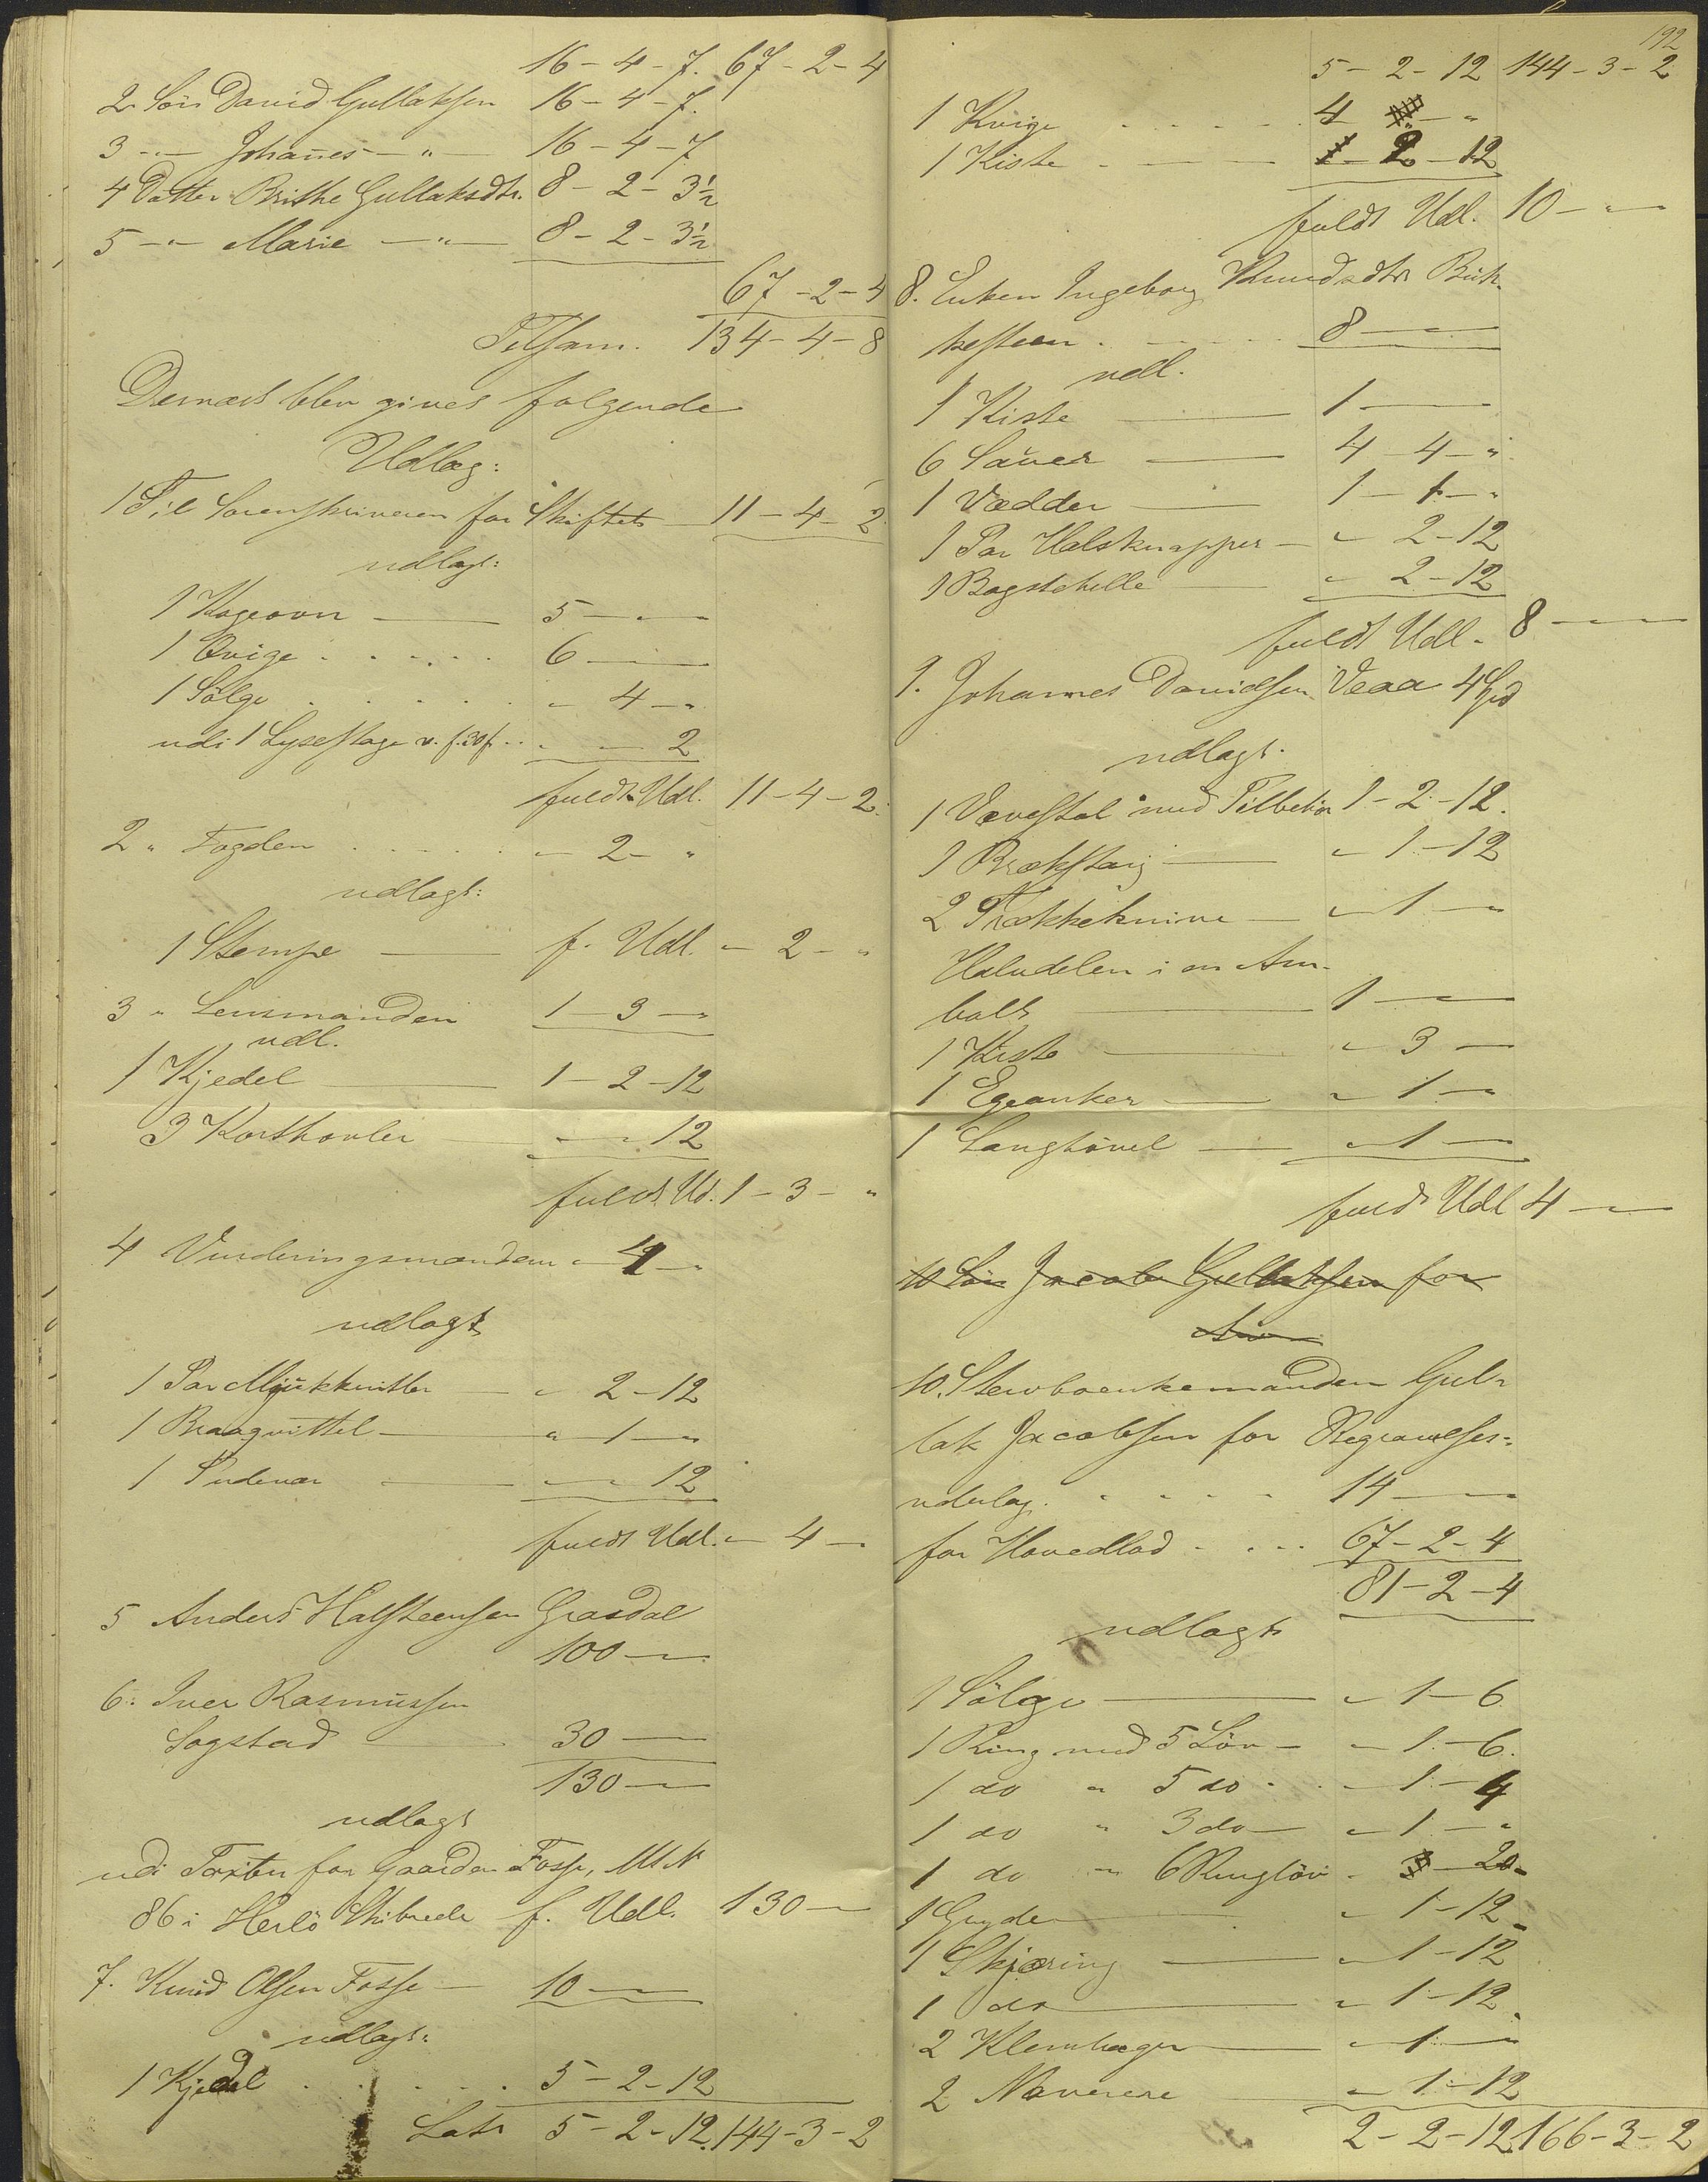 16 - 4 - 7. 67 - 2 - 4
2. Søn David Gullaksen 16 - 4 - 7.
3 -"- Johannes -"- 16 - 4 - 7
4 Datter Brithe Gullaksdtr. 8 - 2 - 3½
5 -"- Marie -"- 8 - 2 - 3½
67 - 2 - 4
Tilsam. 134 - 4 - 8
Dernæst blev givet følgende
Udlæg:
1 Til Sorenskriveren for Skiftet 11 - 4 - 2
udlagt:
1 Kogeovn 5 - " - "
1 Qvige 6 - " - "
1 Sølge " - 4 - "
udi 1 Lysestage " - " - 2
fuldt Udl. 11 - 4 - 2.
2 " Fogden " - 2 - "
udlagt:
1 Stempe f. Udl. " - 2 - "
3 " Lensmanden 1 - 3 - "
udl.
1 Kjedel 1 - 2 - 12
3 Korthovler " - " - 12
fuldt Ud. 1 - 3 - "
4 Vurderingsmændene " - 4 - "
udlagt
1 Par " - 2 - 12
1 " - 1 - "
1 Pudevar " - " - 12
fuldt Udl. " - 4 - "
5 Anders Halsteensen Grasdal
100 - " - "
6. Iver Rasmussen
Sogstad 30 - " - "
130 - " - "
udlagt
udi for Gaarden Fosse, M.N
86 i Herlø Skibrede f. Udl. 130 - " - "
7. Knud Olsen Fosse 10 - " - "
udlagt:
1 Kjedel 5 - 2 - 12
Lats 5 - 2 - 12. 144 - 3 - 2
192
5 - 2 - 12 144 - 3 - 2
1 Kvige 4 - " - "
1 Kiste 2 - 12
fuldt Udl. 10 - " - "
8. Enken Ingeborg Knudsdtr Birk-
hesteen 8 - " - "
udl.
1 Kiste 1 - " - "
6 Sauer 4 - 4 - "
1 Vædder 1 - 1 - "
1 Par Halsknapper " - 2 - 12
1 Bagstehelle " - 2 - 12
fuldt Udl. 8 - " - "
9. Johannes Davidsen Veaa 4 Spd
udlagt.
1 Vævestol med Tilbehør 1 - 2 - 12.
1 Brækstang " - 1 - 12
2 Trækkeknive " - 1 - "
Halvdelen i en Am-
bolt 1 - " - "
1 Kiste " - 3 - "
1 Egeanker " - 1 - "
1 Langhøvel " - 1 - "
fuldt Udl 4 - " - "
10 Søn Jacob Gullaksen for
Arv
10. Stervboenkemanden Gul-
lak Jacobsen for Begravelses-
udlæg. 14 - " - "
for Hovedlod 67 - 2 - 4
81 - 2 - 4
udlagt
1 Sølge " - 1 - 6
1 Ring med 5 Løv " - 1 - 6.
1 do " 5 do " - 1 - 4
1 do " 3 do " - 1 - "
1 do " 6 Ringløv - 20
1 Gryde " - 1 - 12
1 Skjæring " - 1 - 12
1 do " - 1 - 12
2 Klemhager " - 1 - "
2 Naverere " - 1 - 12
2 - 2 - 12. 166 - 3 - 2